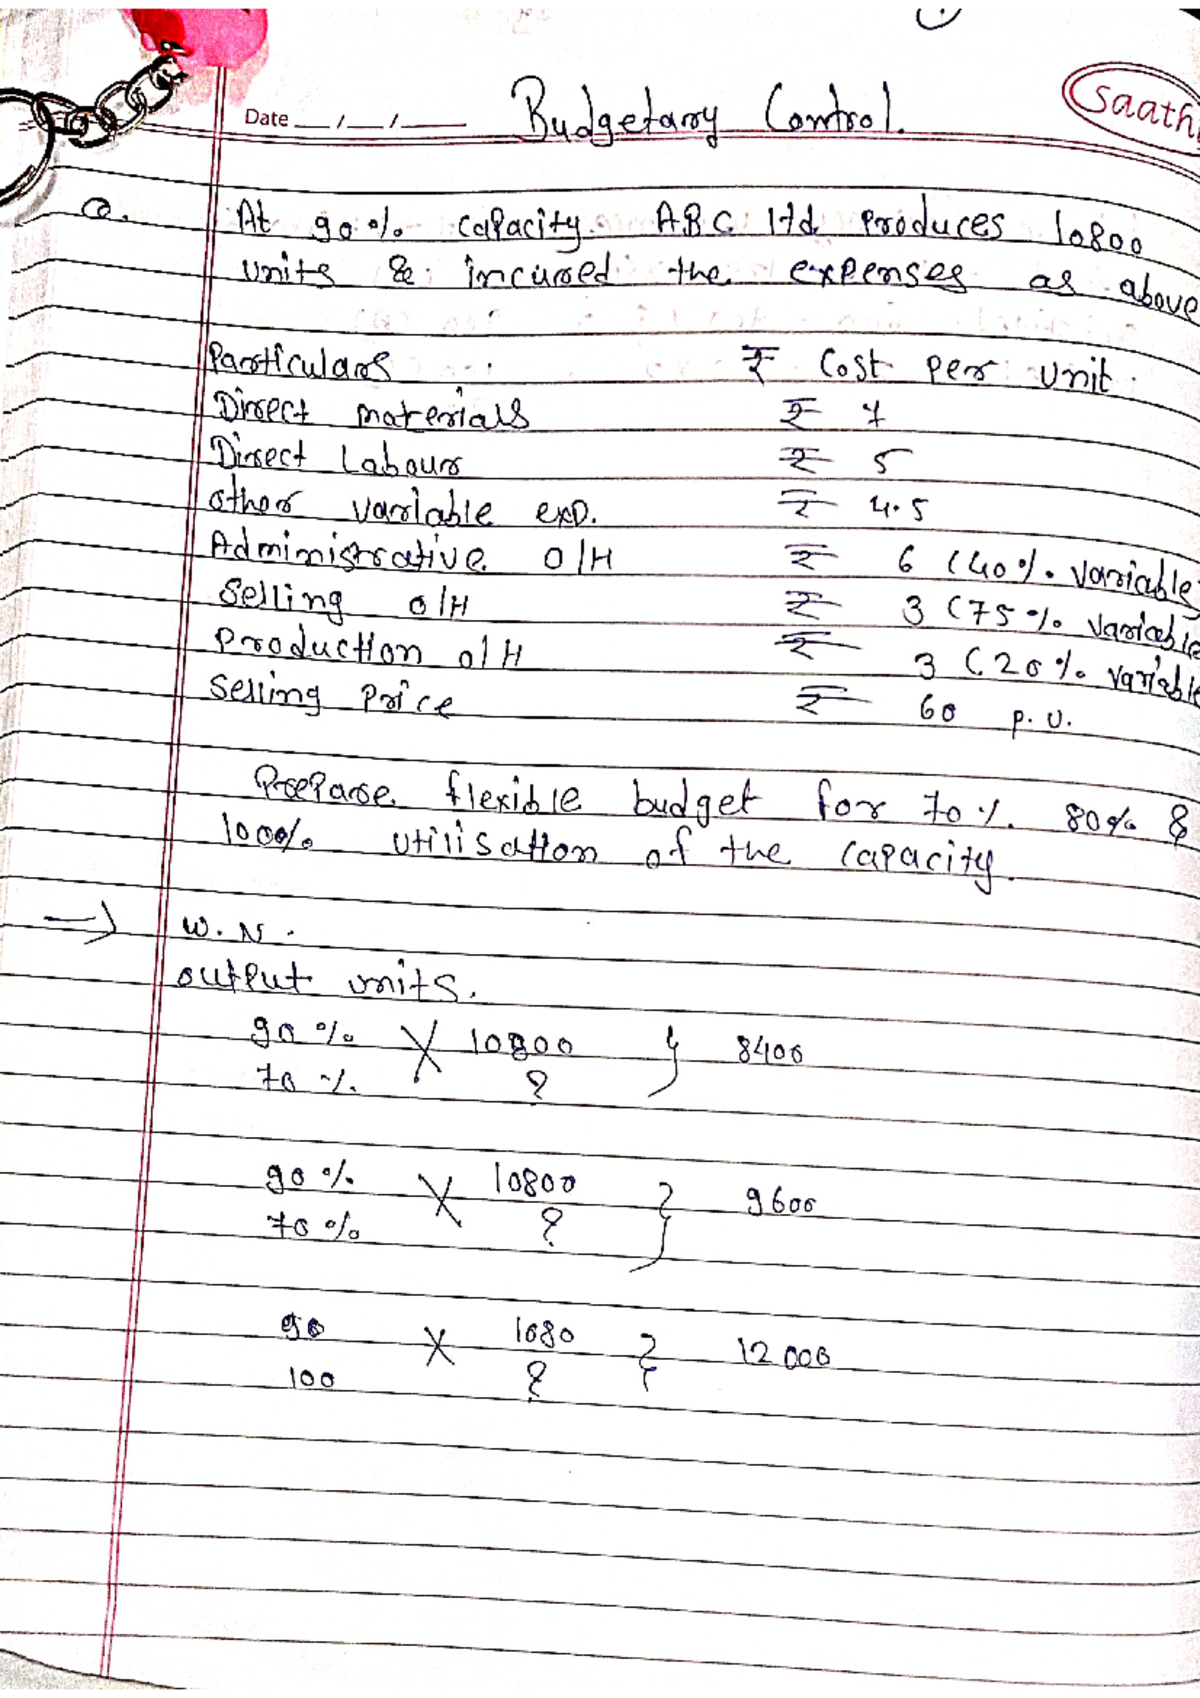 Date __/__/____ Budgetary Control.
Saathi
Q. At 90% capacity ABC ltd. produces 10800
units & incurred the expenses as above
Particulars ₹ Cost per unit.
Direct materials ₹ 7
Direct Labour ₹ 5
other variable exp. ₹ 4.5
Administrative O/H ₹ 6 (40% variable
Selling o/H ₹ 3 (75% variable
Production o/H ₹ 3 (20% variable
Selling Price ₹ 60 p.u.
Prepare flexible budget for 70% 80% &
100% utilisation of the capacity.
⇒ W.N.
output units.
90% X 10800 } 8400
70% ?
90% X 10800 } 9600
70% ?
90 X 1080 } 12000
100 ?